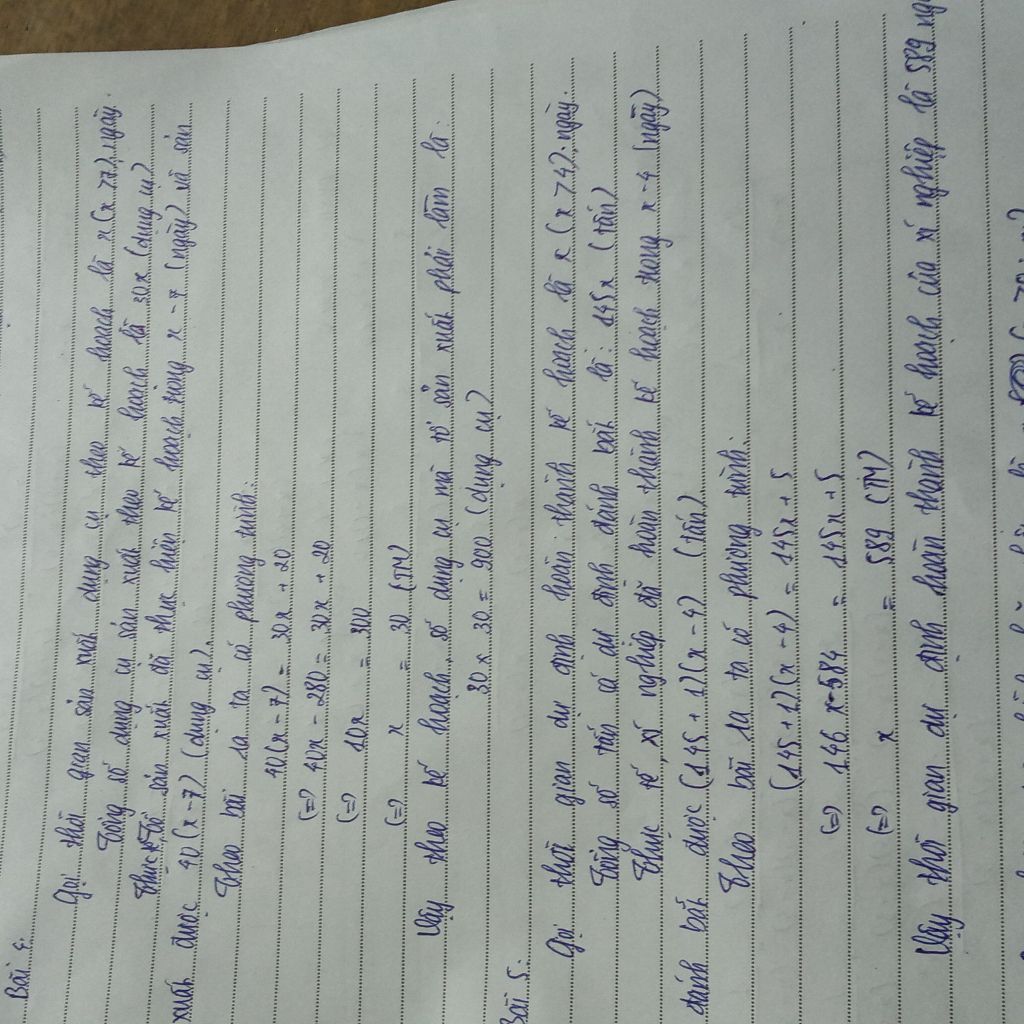 Bài 4:
Gọi thời gian sản xuất dụng cụ theo kế hoạch là x (x > 7), ngày.
Tổng số dụng cụ sản xuất theo kế hoạch là 30x (dụng cụ)
Thực tế tổ sản xuất đã thực hiện kế hoạch trong x - 7 (ngày) và sản
xuất được 40(x - 7) (dụng cụ).
Theo bài ra ta có phương trình:
40(x - 7) = 30x + 20
(=) 40x - 280 = 30x + 20
(=) 10x = 300
(=) x = 30 (TM)
Vậy theo kế hoạch, số dụng cụ mà tổ sản xuất phải làm là:
30 x 30 = 900 (dụng cụ)
Bài 5:
Gọi thời gian dự định hoàn thành kế hoạch là x (x > 4), ngày.
Tổng số tấn cá dự định đánh bắt là: 145x (tấn)
Thực tế, xí nghiệp đã hoàn thành kế hoạch trong x - 4 (ngày)
đánh bắt được (145 + 1)(x - 4) (tấn)
Theo bài ra ta có phương trình:
(145 + 1)(x - 4) = 145x + 5
(=) 146x - 584 = 145x + 5
(=) x = 589 (TM)
Vậy thời gian dự định hoàn thành kế hoạch của xí nghiệp là 589